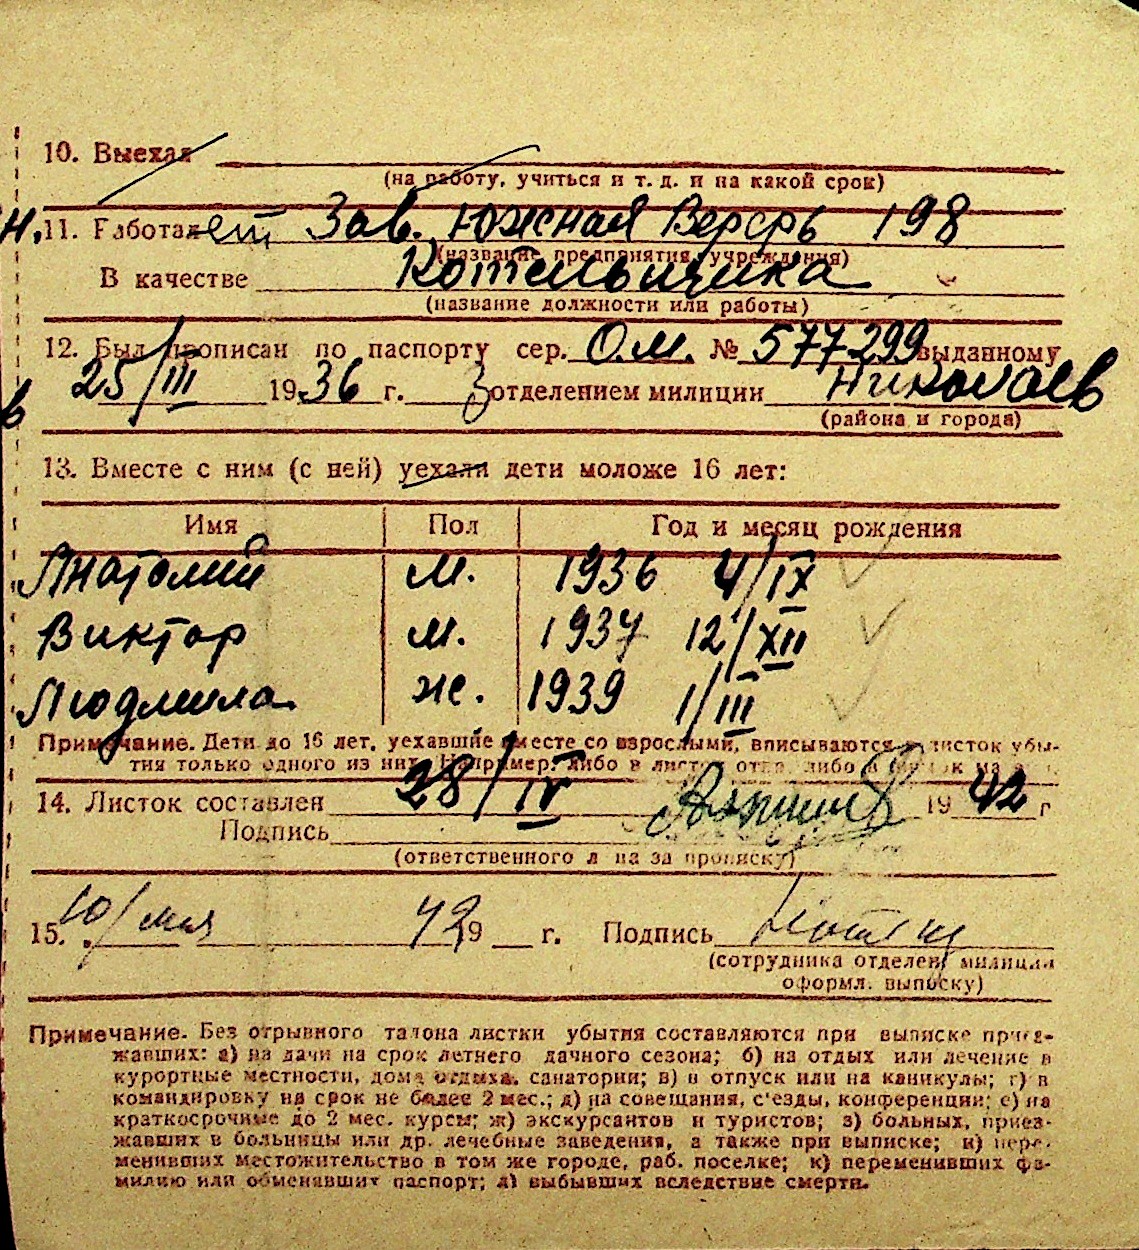 10. Выехал
(на работу, учиться и т. д. и на какой срок)
н. 11. Работает Зав. Южная Верфь 198
(название предприятия, учреждения)
В качестве Котельщика
(название должности или работы)
12. Был прописан по паспорту сер. О.М. № 577299 выданному
в 25/III 1936 г. 3 отделением милиции Николаев
(района и города)
13. Вместе с ним (с ней) уехали дети моложе 16 лет:
Имя Пол Год и месяц рождения
Анатолий м. 1936 4/IX
Виктор м. 1937 12/XII
Людмила ж. 1939 1/III
Примечание. Дети до 16 лет, уехавшие вместе со взрослыми, вписываются в листок убы-
тия только одного из них. Например: либо в листок отца, либо в листок матери.
14. Листок составлен 28/IV 1942 г
Подпись
(ответственного лица за прописку)
15. 10/мая 42 19 г. Подпись
(сотрудника отделен. милиции
оформл. выписку)
Примечание. Без отрывного талона листки убытия составляются при выписке приез-
жавших: а) на дачи на срок летнего дачного сезона; б) на отдых или лечение в
курортные местности, дома отдыха, санатории; в) в отпуск или на каникулы; г) в
командировку на срок не более 2 мес.; д) на совещания, с'езды, конференции; е) на
краткосрочные до 2 мес. курсы; ж) экскурсантов и туристов; з) больных, приез-
жавших в больницы или др. лечебные заведения, а также при выписке; и) пере-
менивших местожительство в том же городе, раб. поселке; к) переменивших фа-
милию или обменявших паспорт; л) выбывших вследствие смерти.